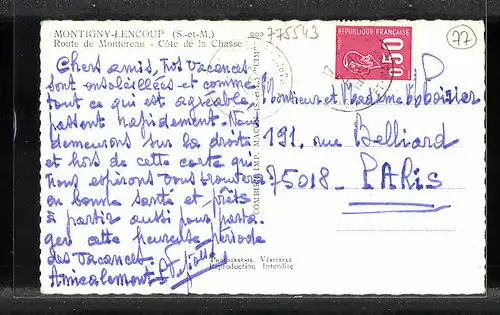 MONTIGNY-LENCOUP (S.-et-M.)
Route de Montereau - Côte de la Chasse
775543
77
RÉPUBLIQUE FRANÇAISE
0,50
Chers amis, Nos vacances
sont ensoleillées et comme
tout ce qui est agréable,
passent rapidement. Nous
demeurons sur la droite
et hors de cette carte qui
nous espérons vous trouvera
en bonne santé et prêts
à partir aussi pour parta-
ger cette heureuse période
des vacances.
Amicalement
Monsieur et Madame
191, rue Belliard
75018 - PARIS
COMBIER IMP. MACON
PHOTOGRAPHIE VÉRITABLE
Reproduction Interdite